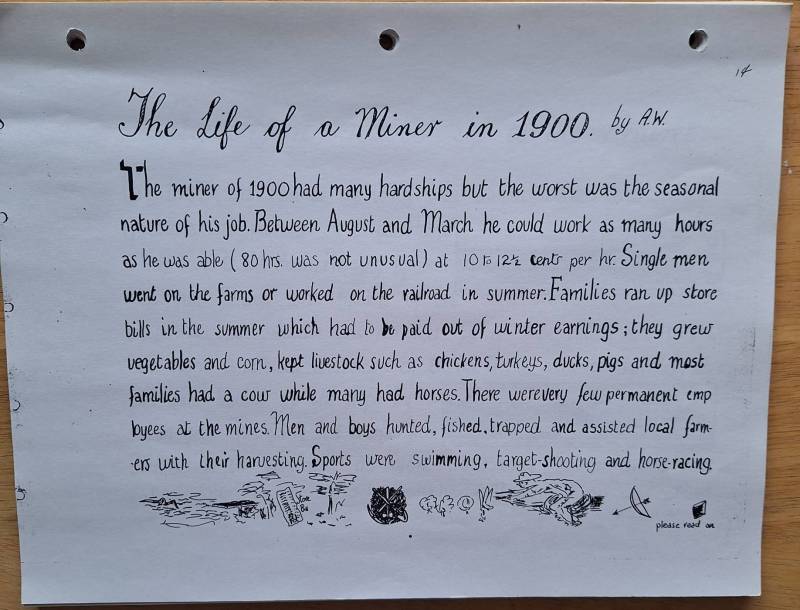 14
The Life of a Miner in 1900. by A.W.
The miner of 1900 had many hardships but the worst was the seasonal
nature of his job. Between August and March he could work as many hours
as he was able (80 hrs. was not unusual) at 10 to 12½ cents per hr. Single men
went on the farms or worked on the railroad in summer. Families ran up store
bills in the summer which had to be paid out of winter earnings; they grew
vegetables and corn, kept livestock such as chickens, turkeys, ducks, pigs and most
families had a cow while many had horses. There were very few permanent emp
loyees at the mines. Men and boys hunted, fished, trapped and assisted local farm-
ers with their harvesting. Sports were swimming, target-shooting and horse-racing.
please read on